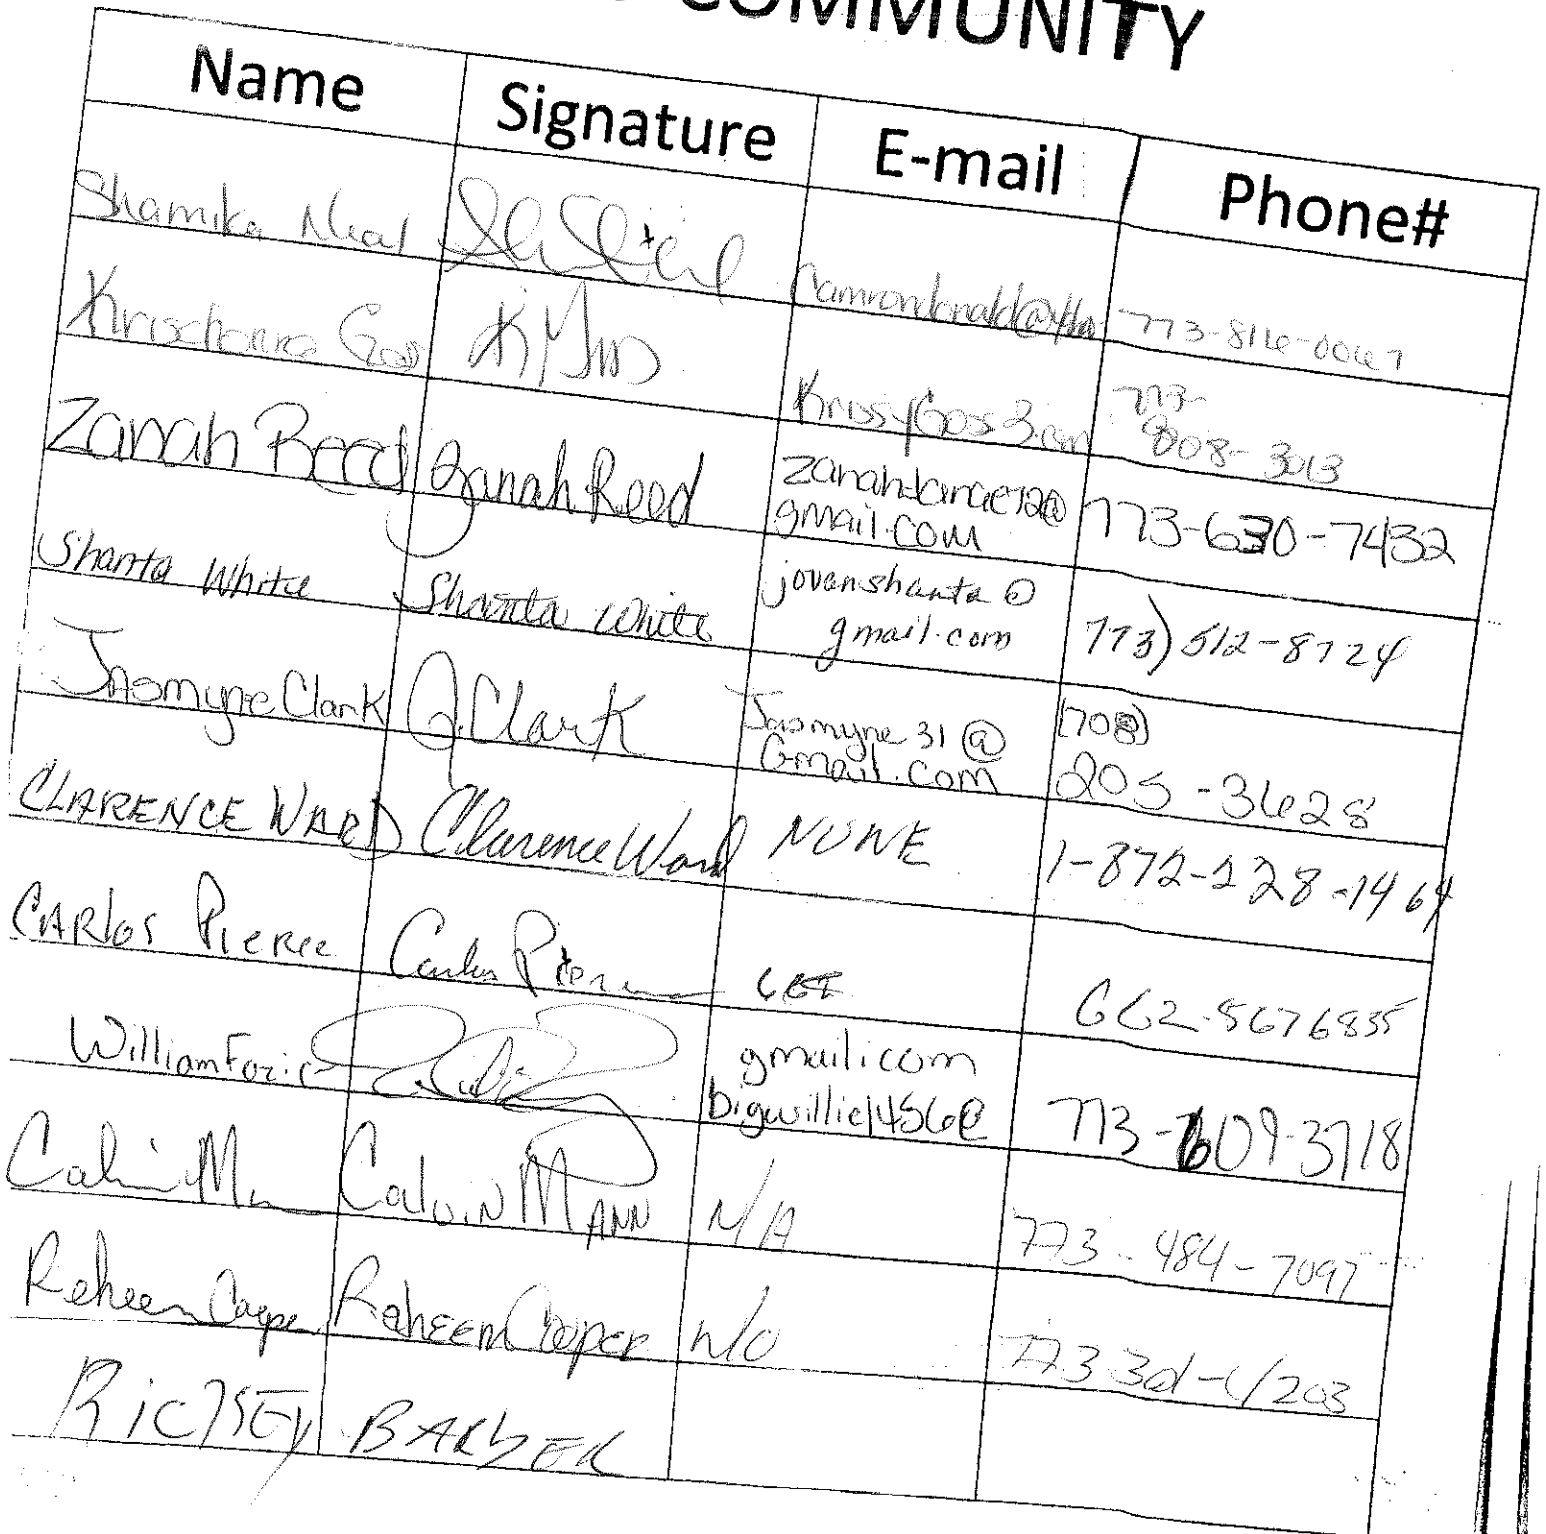 COMMUNITY
Name Signature E-mail Phone#
Shamika Neal 773-816-0067
KrissyGoss3.com 773-
808-3013
Zanah Reed Zanah Reed gmail.com 773-630-7432
Shanta White Shanta White jovanshanta@
gmail.com 773) 512-8724
Jasmyne Clark J. Clark Jasmyne31@
Gmail.com (708)
205-3628
CLARENCE WARD Clarence Ward NONE 1-872-228-1464
CARLOS PIERCE Carlos Pierce 662-5676835
William gmail.com
bigwillie1456@ 773-609-3718
Calvin Mann CALVIN MANN N/A 773-484-7097
Raheem Cooper RAHEEM COOPER N/O 773
BARBER